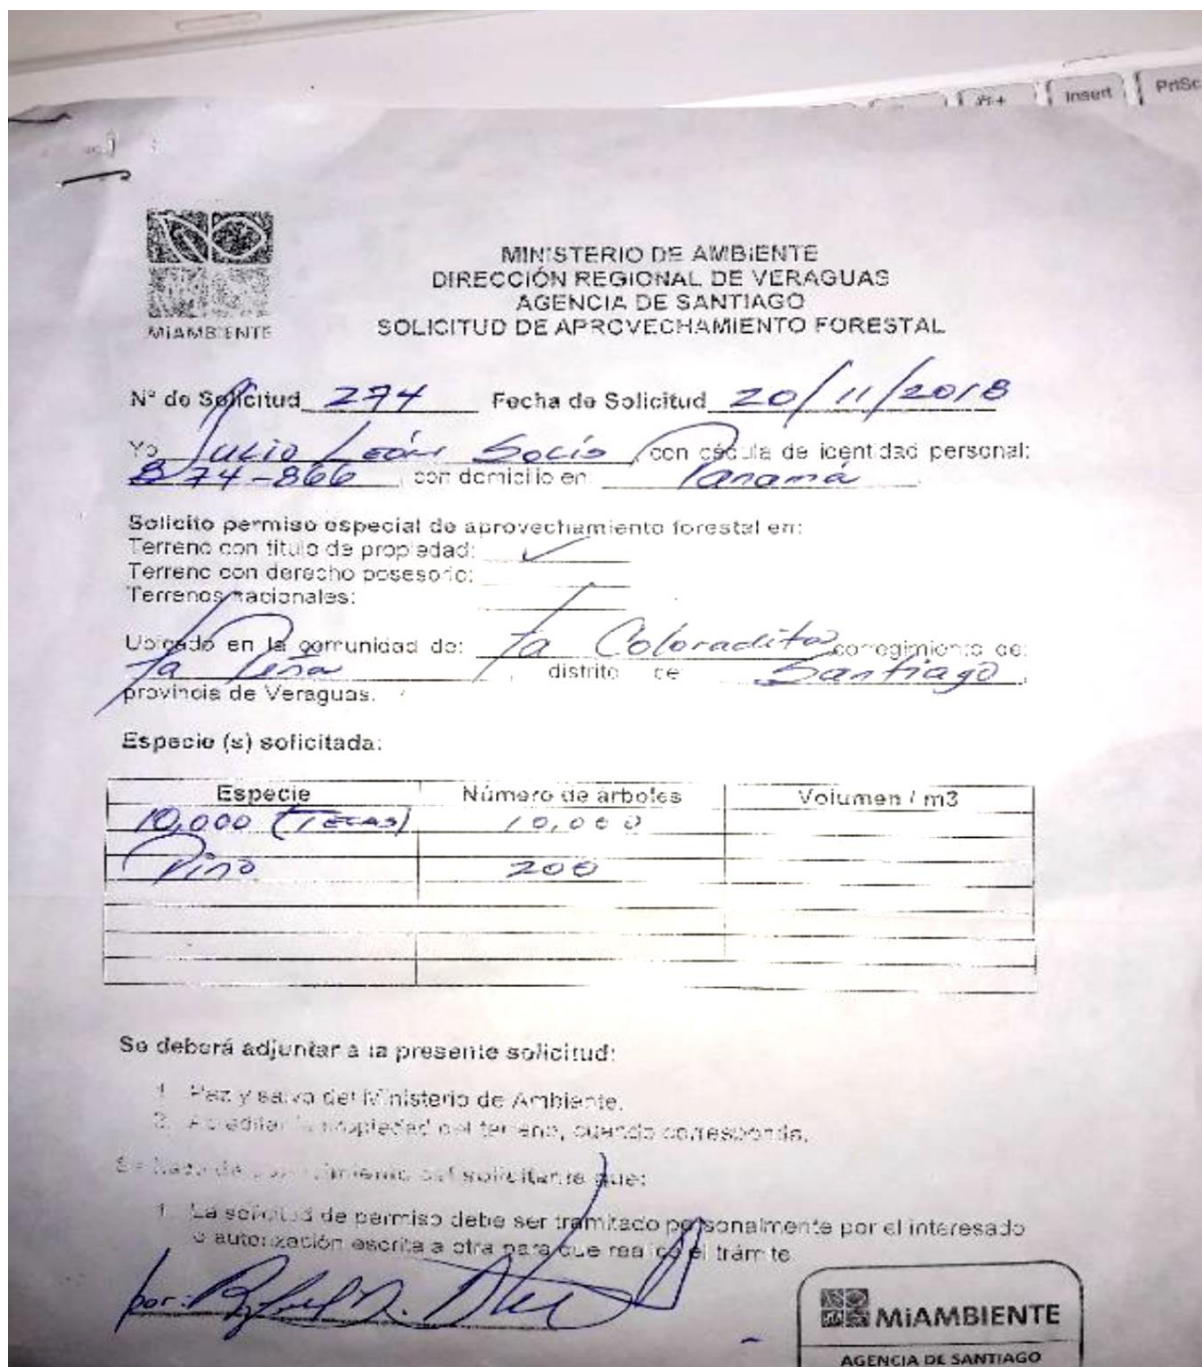 Insert PrtSc
MiAMBIENTE
MINISTERIO DE AMBIENTE
DIRECCIÓN REGIONAL DE VERAGUAS
AGENCIA DE SANTIAGO
SOLICITUD DE APROVECHAMIENTO FORESTAL
N° de Solicitud 274 Fecha de Solicitud 20/11/2018
Yo Julio León Solís, con cédula de identidad personal:
8 74-866, con domicilio en: Panamá
Solicito permiso especial de aprovechamiento forestal en:
Terreno con título de propiedad: ✓
Terreno con derecho posesorio:
Terrenos nacionales:
Ubicado en la comunidad de: La Coloradita corregimiento de:
La Peña, distrito de Santiago,
provincia de Veraguas.
Especie (s) solicitada:
Especie Número de árboles Volumen / m3
10,000 (Tecas) 10,000
Pino 200
Se deberá adjuntar a la presente solicitud:
1. Paz y salvo del Ministerio de Ambiente.
2. Acreditar la propiedad del terreno, cuando corresponda.
Se hace de conocimiento del solicitante que:
1. La solicitud de permiso debe ser tramitado personalmente por el interesado
o autorización escrita a otra para que realice el trámite
por:
MiAMBIENTE
AGENCIA DE SANTIAGO